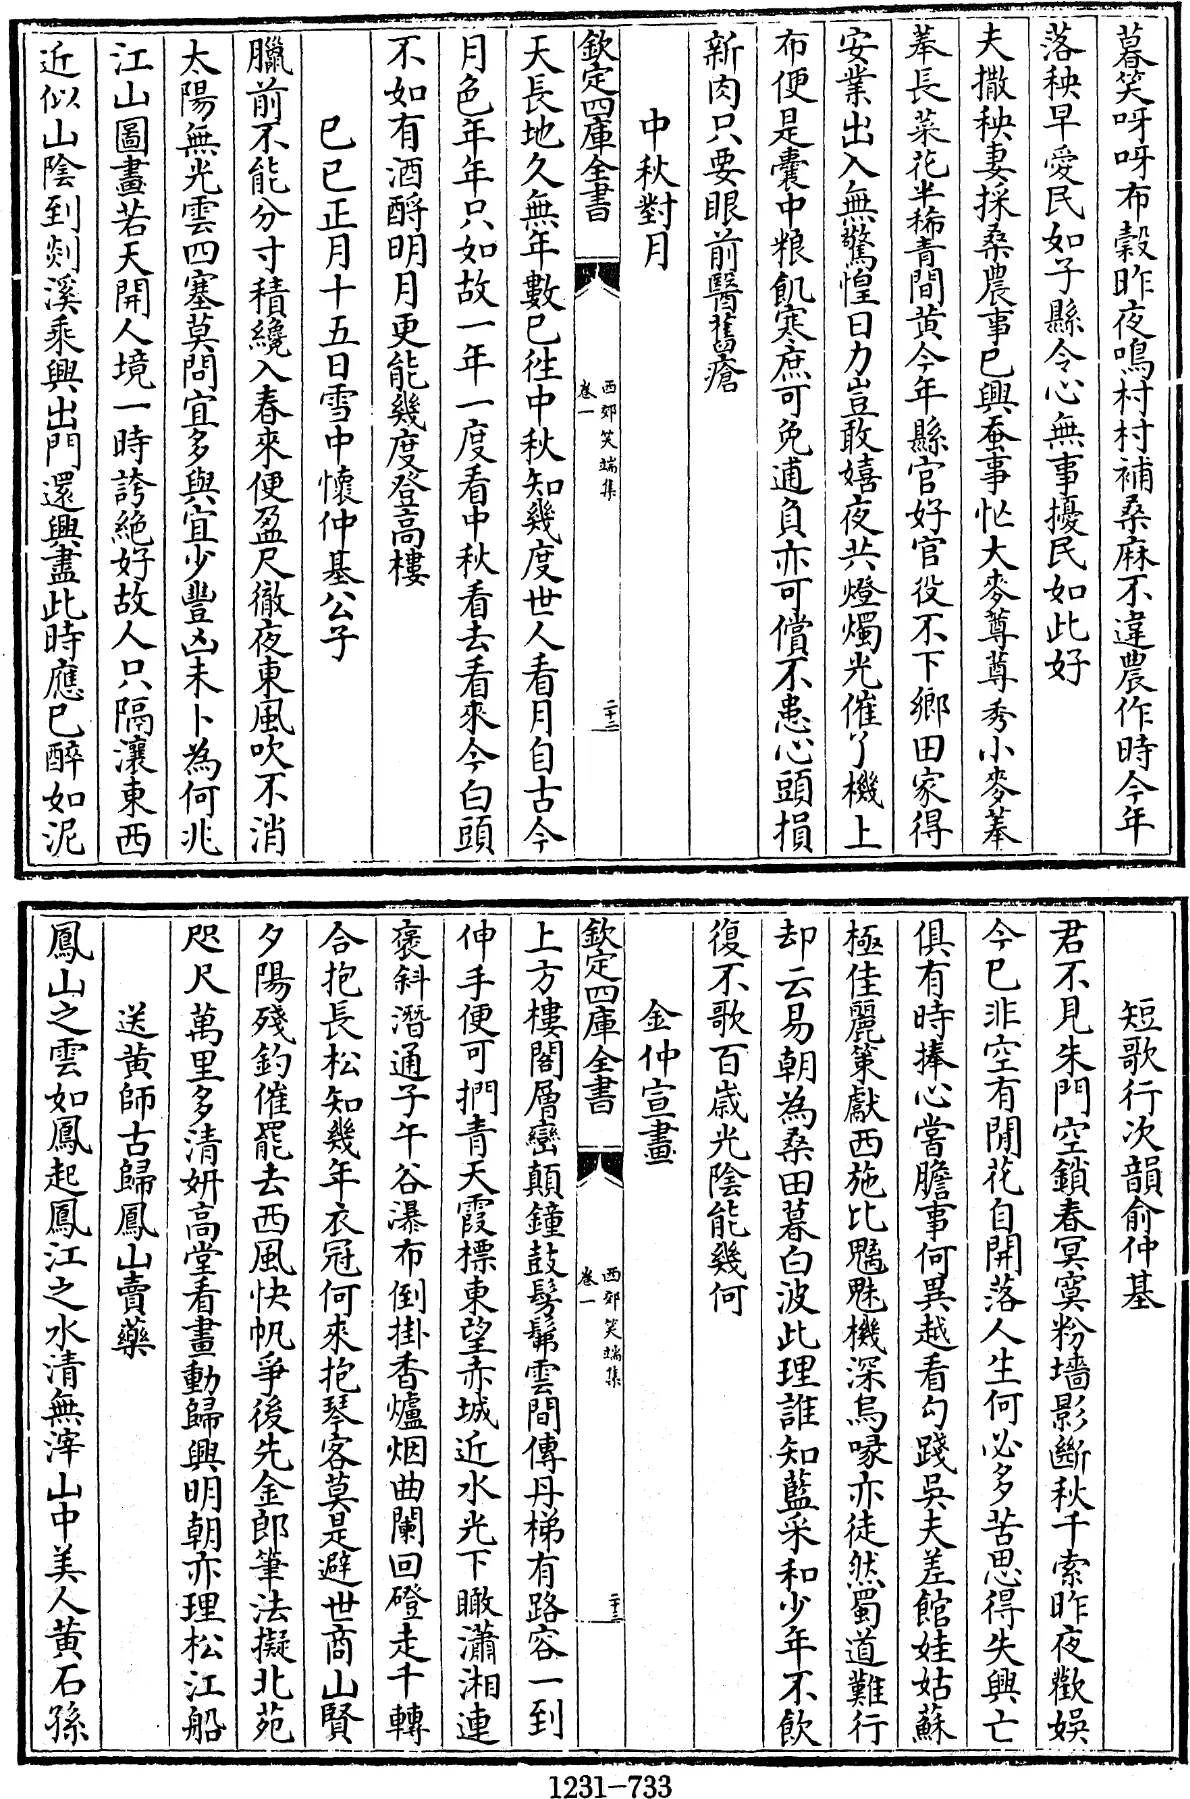 暮笑呀呀布穀昨夜鳴村村補桑麻不違農作時今年
落秧早愛民如子縣令心無事擾民如此好
夫撒秧妻採桑農事已興蚕事忙大麥蓴蓴秀小麥菶
菶長菜花半稀青間黄今年縣官好官役不下鄉田家得
安業出入無驚惶日力豈敢嬉夜共燈燭光催了機上
布便是囊中粮飢寒庶可免逋負亦可償不患心頭損
新肉只要眼前醫舊瘡
中秋對月
欽定四庫全書
西郊笑端集
卷一
二十二
天長地久無年數已徃中秋知幾度世人看月自古今
月色年年只如故一年一度看中秋看去看來今白頭
不如有酒酹明月更能幾度登高樓
已巳正月十五日雪中懷仲基公子
臘前不能分寸積纔入春來便盈尺徹夜東風吹不消
太陽無光雲四塞莫問宜多與宜少豐凶未卜為何兆
江山圖畫若天開人境一時誇絶好故人只隔瀼東西
近似山陰到剡溪乘興出門還興盡此時應已醉如泥
短歌行次韻俞仲基
君不見朱門空鎖春冥寞粉墻影斷秋千索昨夜歡娛
今已非空有閒花自開落人生何必多苦思得失興亡
俱有時捧心嘗膽事何異越看勾踐吳夫差館娃姑蘇
極佳麗策獻西施比魑魅機深烏喙亦徒然蜀道難行
却云易朝為桑田暮白波此理誰知藍采和少年不飲
復不歌百歲光陰能幾何
金仲宣畫
欽定四庫全書
西郊笑端集
卷一
二十三
上方樓閣層巒顛鐘鼓髣髴雲間傳丹梯有路容一到
伸手便可捫青天霞標東望赤城近水光下瞰瀟湘連
褒斜潛通子午谷瀑布倒掛香爐烟曲闌回磴走千轉
合抱長松知幾年衣冠何來抱琴客莫是避世商山賢
夕陽殘釣催罷去西風快帆爭後先金郎筆法擬北苑
咫尺萬里多清妍高堂看畫動歸興明朝亦理松江船
送黄師古歸鳳山賣藥
鳳山之雲如鳳起鳳江之水清無滓山中美人黄石孫
1231-733